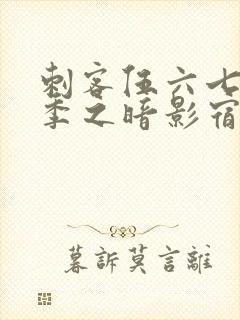 刺客伍六七
季之暗影宿
暮訴莫言離